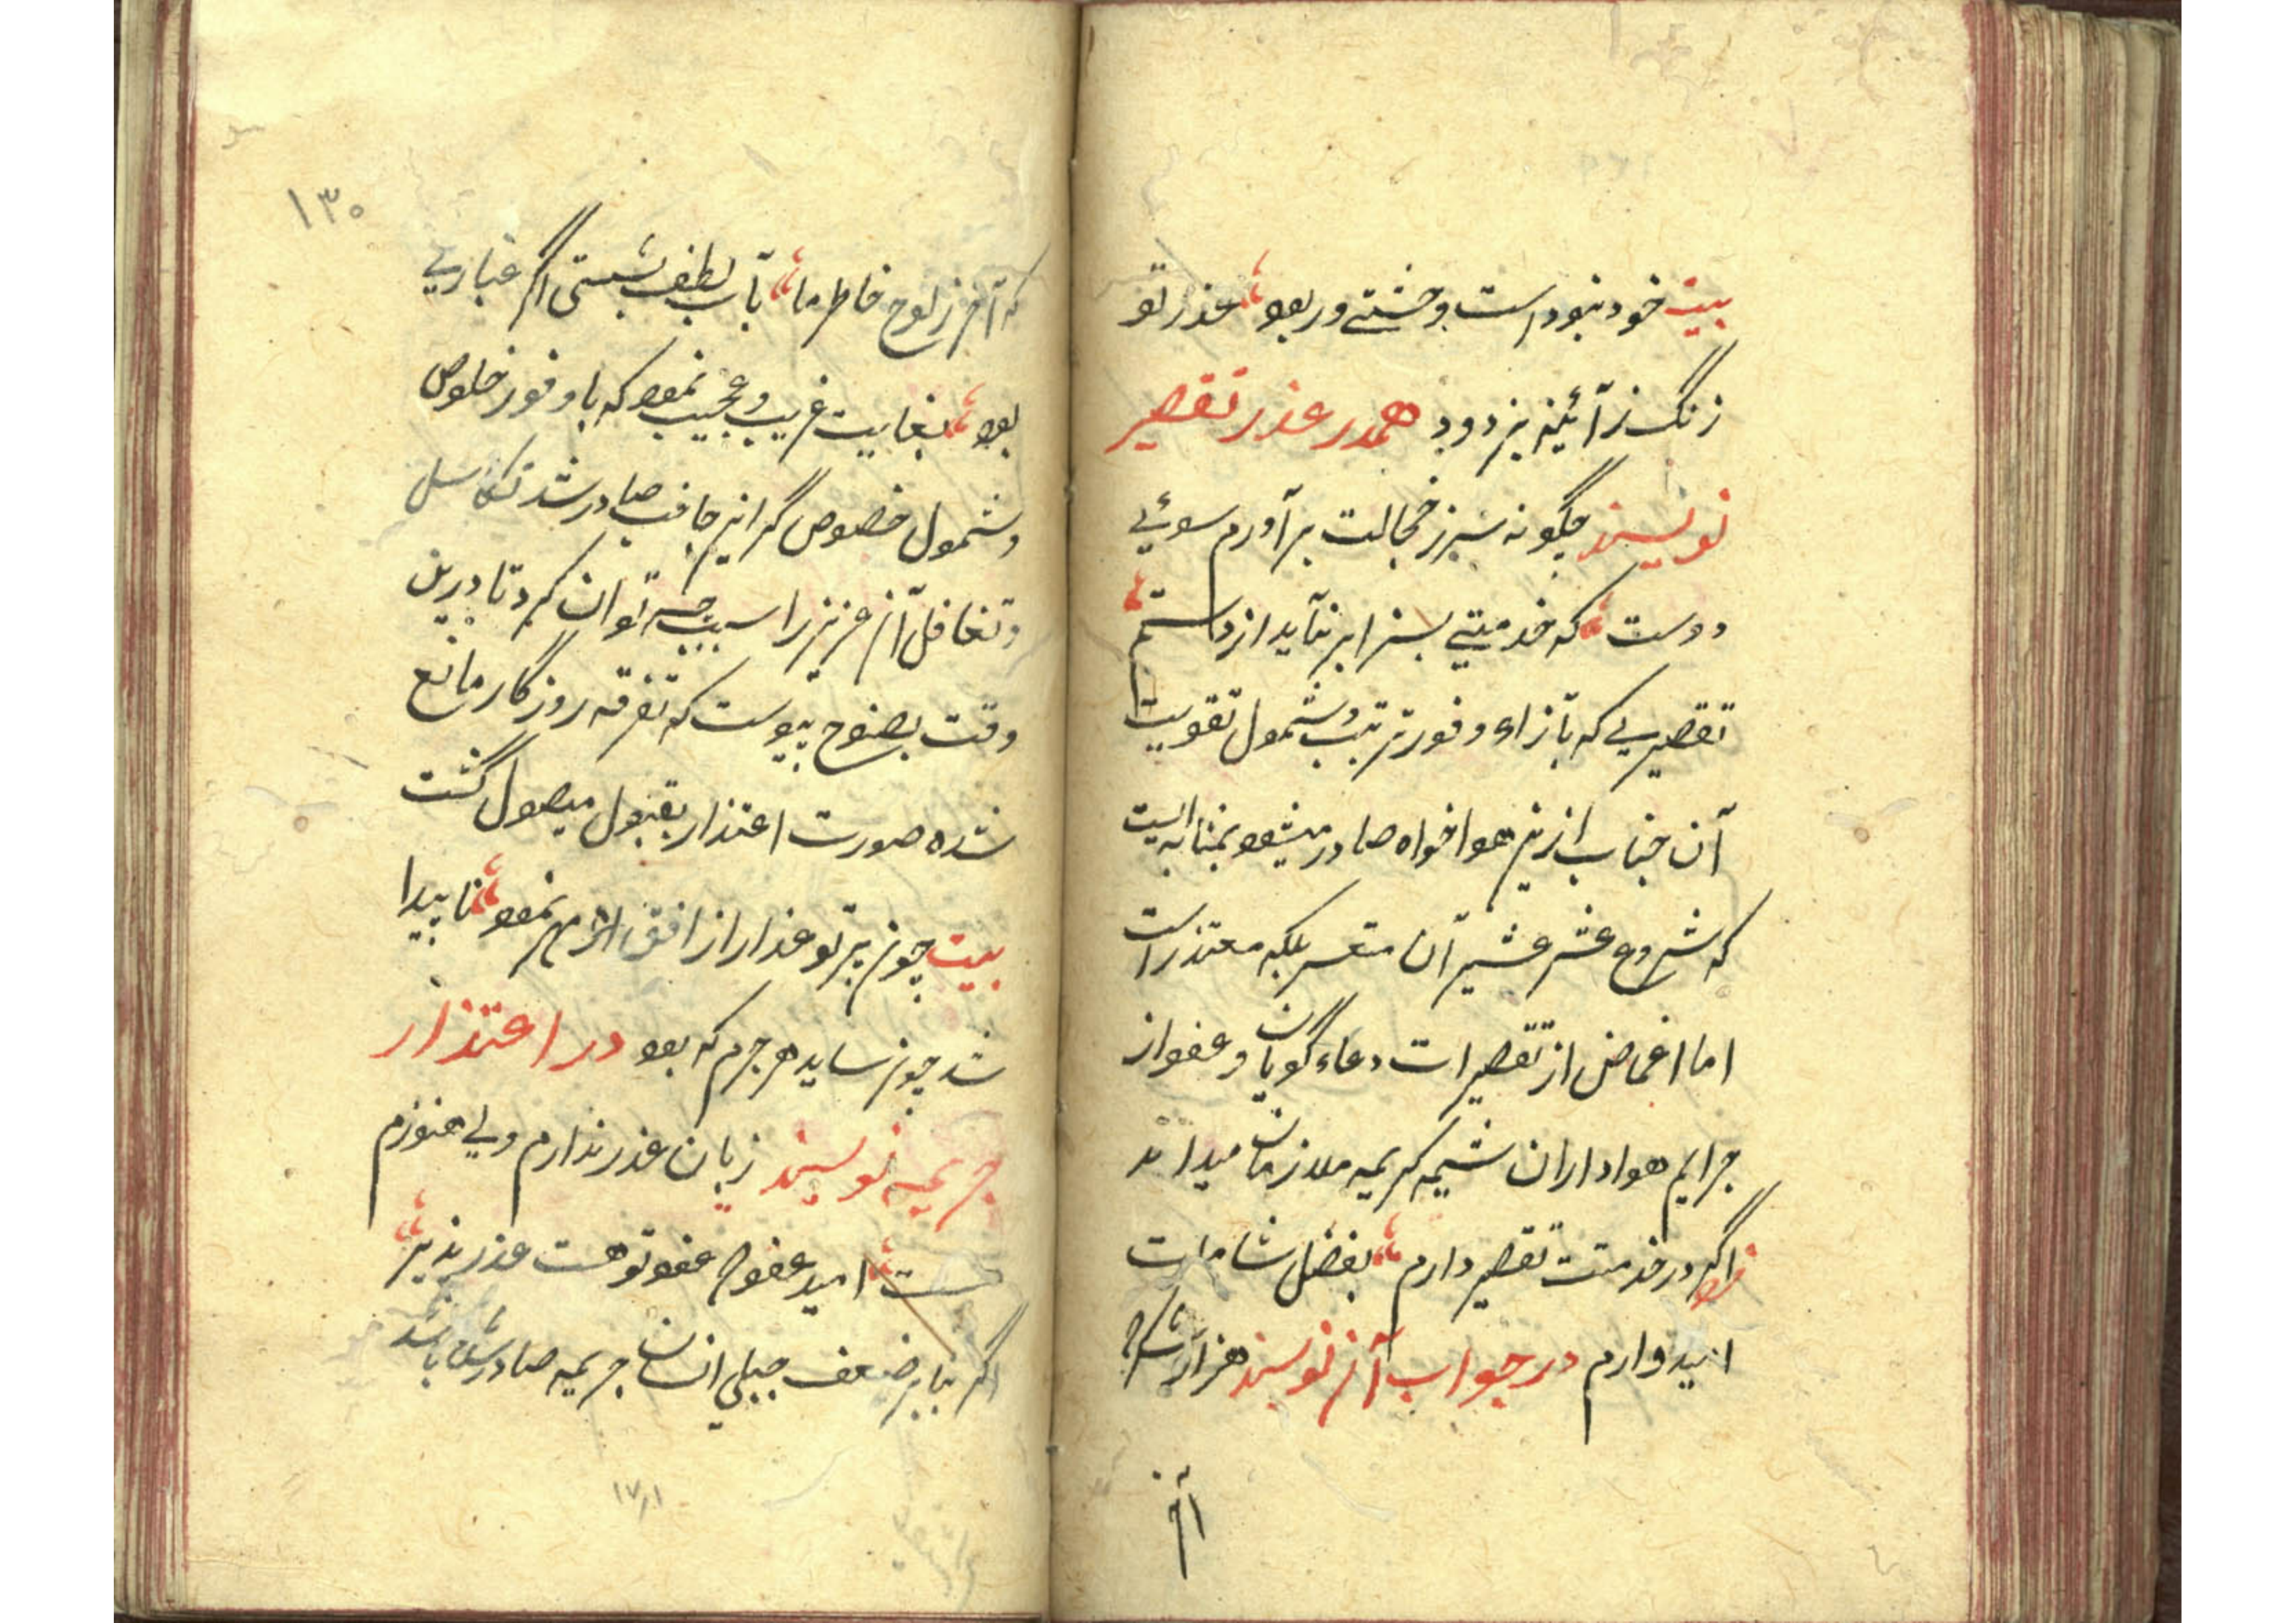 بیت خود نبود است وحشتے ور بود عذر تو
زنگ ز آئینه بزدود همدر عذر تقصیر
نویسند چگونه سر ز خجالت برآورم سوئے
دوست که خدمتے بسزا بر نیاید از دستم
تقصیری که بازاء وفور تربیت وشمول تقویت
آن جناب ازین هواخواه صادر میشود بمثابه ایست
که شروع عشر عشیر آن متعسر بلکه متعذر است
اما اغماض از تقصیرات دعاءگویان و عفو از
جرایم هواداران شیمه کریمه ملازمان میداند
فرد اگر در خدمتت تقصیر دارم بفضل شاملت
امیدوارم در جواب آن نویسند هزار شکر
که آخر ز لوح خاطر ما بآب لطف بشستی اگر غباری
بود بغایت غریب و عجیب نمود که با وفور خلوص
وشمول خصوص گر ازین جانب صادر شد تکاسل
وتغافل آن عزیز را سبب چه توان کرد تا درین
وقت بوضوح پیوست که تفرقه روزگار مانع
شده صورت اعتذار بقبول موصول گشت
بیت چون پرتو عذار از افق مهر نمود ناپیدا
شد چون سایه هر جرم که بود در اعتذار
جریمه نویسند زبان عذر ندارم ولی هنوزم
هست امید عفو چو عفو تو هست عذر پذیر
اگر بنابر ضعف جبلی انسان جریمه صادر شده باشد
۱۳۰